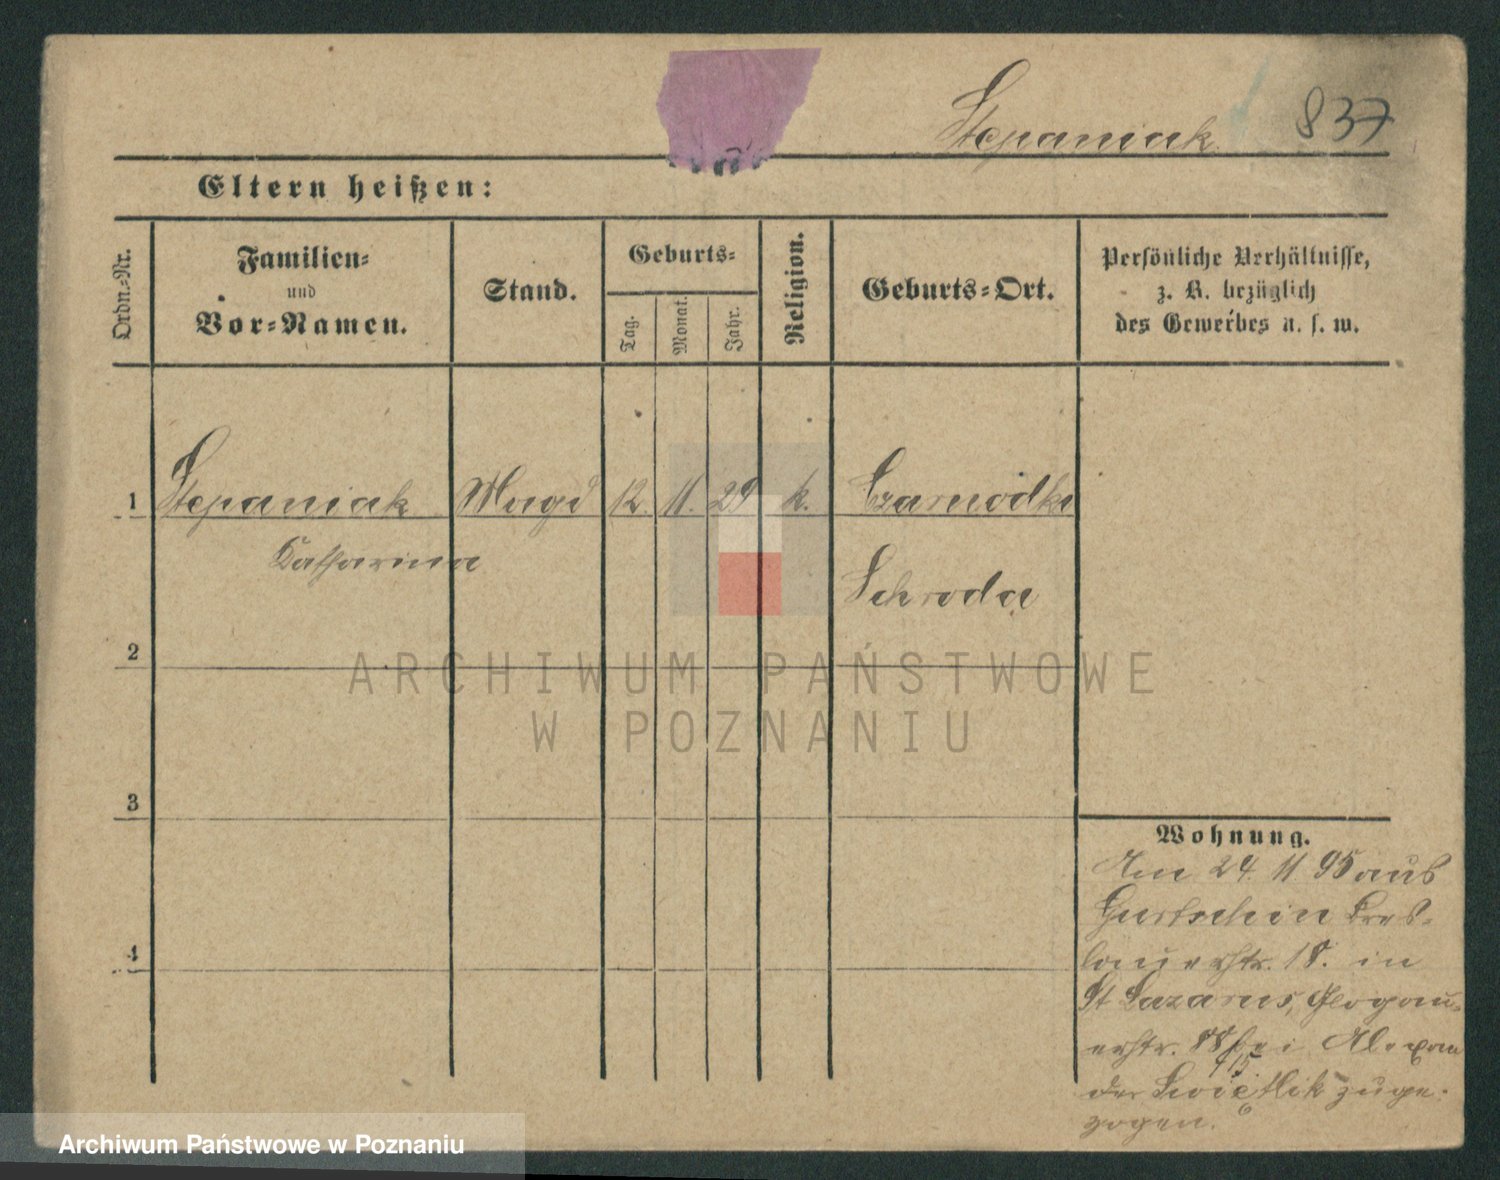 Stepaniak 837
Eltern heißen:
Ordn.-Nr.
Familien-
und
Vor-Namen.
Stand.
Geburts-
Tag.
Monat.
Jahr.
Religion.
Geburts-Ort.
Persönliche Verhältnisse,
z. B. bezüglich
des Gewerbes u. s. w.
1 Stepaniak Magd 12. 11. 29 k. Czarnodki
Katharina
Schroda
2
3
4
Wohnung.
Am 24. 11. 95 aus
Gurtschin Bres-
lauerstr. 18. in
St Lazarus, Glogau-
erstr. bei Alexan
der zuge-
zogen.
ARCHIWUM PAŃSTWOWE
W POZNANIU
Archiwum Państwowe w Poznaniu